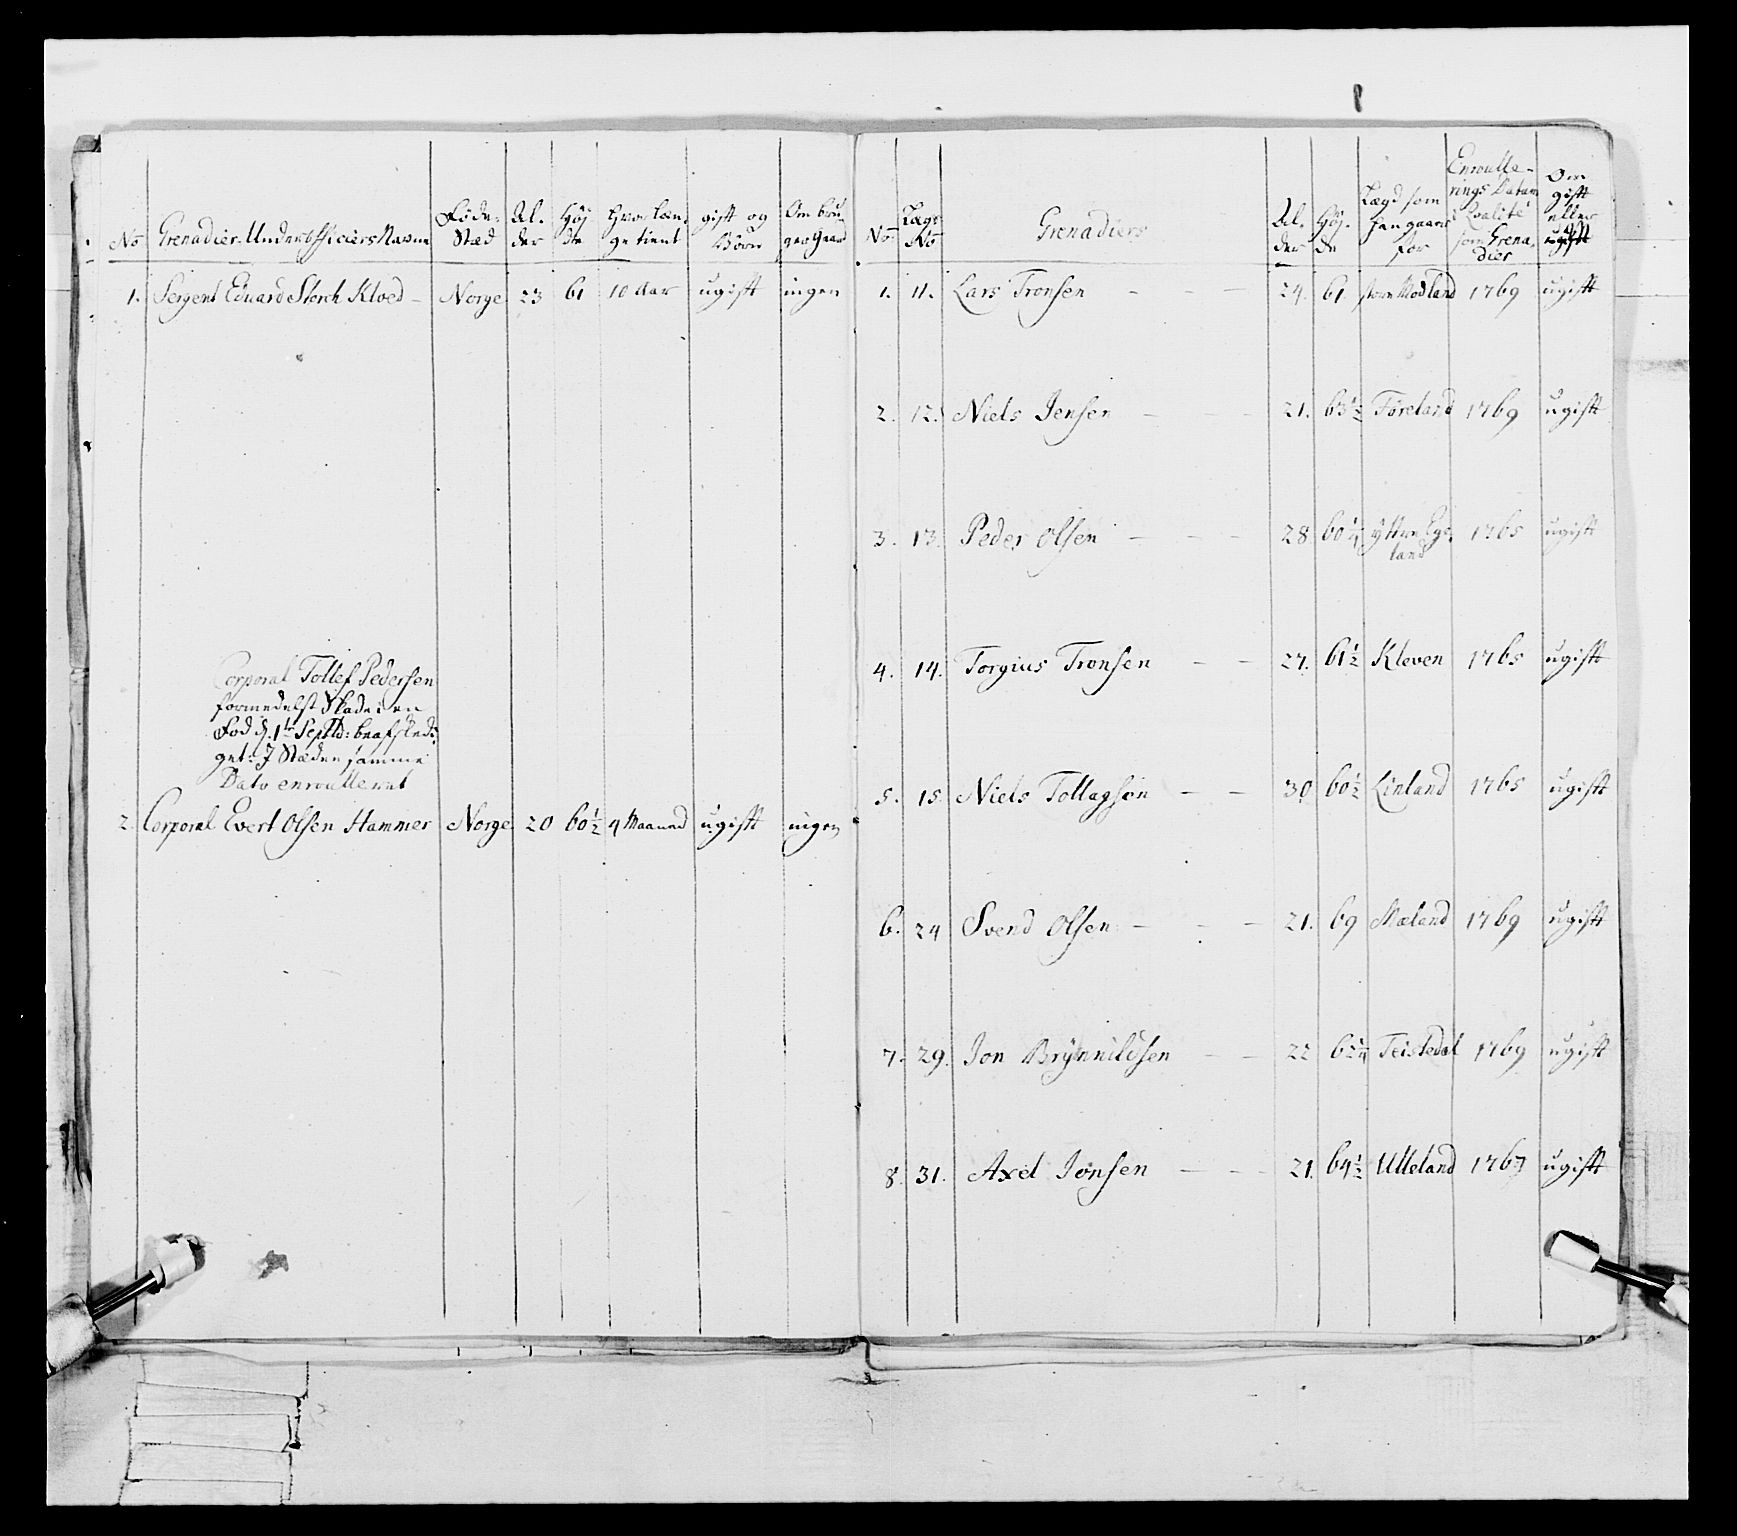 No Grenadier-Underofficiers Navne Føde-Stæd Al-der Høj de Hvor længe tient gift og Børn Om bruger Gaard
1. Sergent Eduard Storch Kloed – Norge 23 61 10 Aar ugift ingen
Corporal Tollef Pedersen
formedelst Skade i en
Fod d. 1te Septbr: beafskedi-
get: I Stæden samme
Dato enroulleret
2. Corporal Evert Olsen Hammer Norge 20 60½ 4 Maaned ugift ingen
No Lægs No Grenadiers Al-der Høj-de Lægd som han gaar for Enroulle-rings Datum i Qualité som Grena-dier Om gift eller ugift
1. 11. Lars Tronsen – – – 24. 61. store Modland 1769 ugift
2. 12. Niels Jensen – – – 21. 63½ Føreland 1769 ugift
3. 13. Peder Olsen – – – 28 60¼ ÿttre Egeland 1765 ugift
4. 14. Torgius Tronsen – – 27. 61½ Kleven 1765 ugift
5. 15. Niels Tollagsen – – 30 60½ Linland 1765 ugift
6. 24 Svend Olsen – – – 21. 69 Mæland 1769 ugift
7. 29. Jon Brÿnnildsen – – 22 62¼ Teistedal 1769 ugift
8. 31. Axel Jonsen – – 21. 64½ Ulleland 1767 ugift